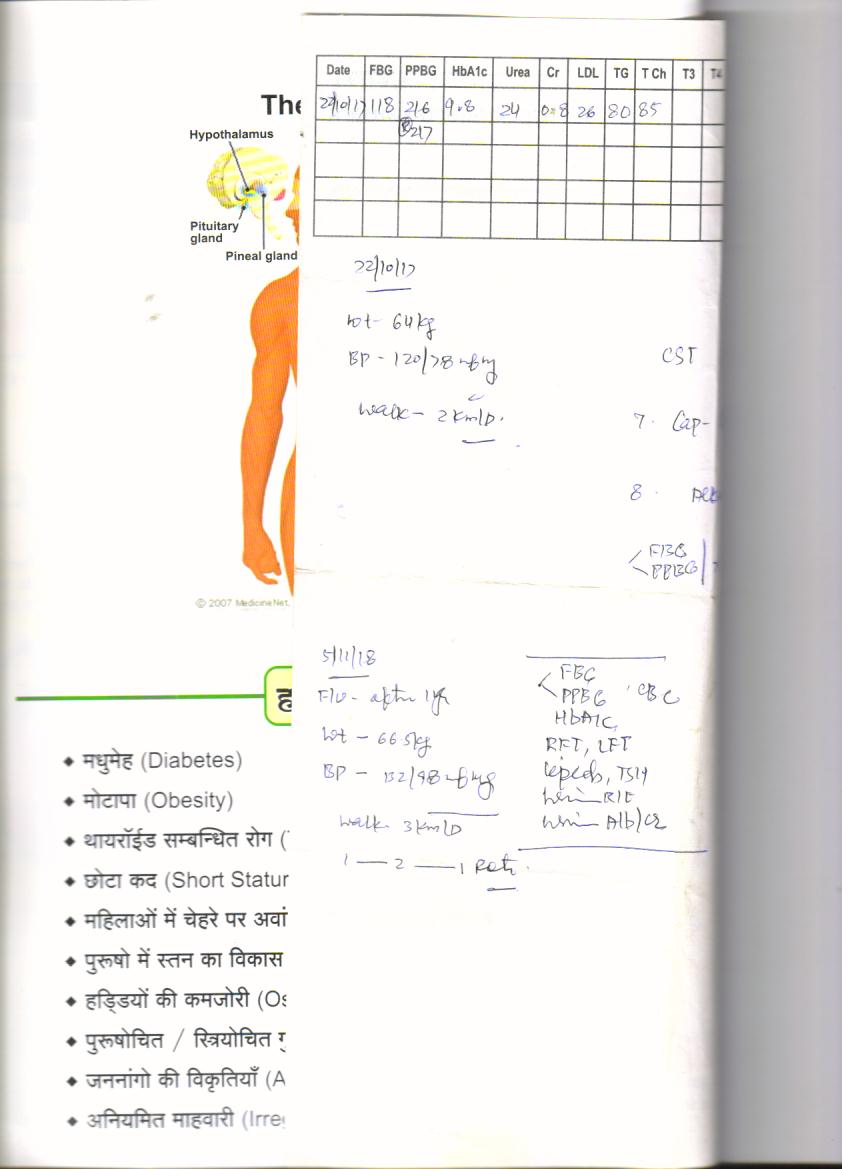 The
Hypothalamus
Pituitary
gland
Pineal gland
© 2007 MedicineNet,
ह
◆ मधुमेह (Diabetes)
◆ मोटापा (Obesity)
◆ थायरॉईड सम्बन्धित रोग (
◆ छोटा कद (Short Statur
◆ महिलाओं में चेहरे पर अवां
◆ पुरूषो में स्तन का विकास
◆ हड्डियों की कमजोरी (Os
◆ पुरूषोचित / स्त्रियोचित गु
◆ जननांगो की विकृतियाँ (A
◆ अनियमित माहवारी (Irre
Date FBG PPBG HbA1c Urea Cr LDL TG T Ch T3 T4
22/10/17 118 216 9.8 24 0.8 26 80 85
217
22/10/17
wt- 64kg
BP - 120/78
CST
walk - 2 km/D.
7. Cap-
8.
FBG
PPBG
5/11/18
F/U - after 1yr
wt - 66.5kg
BP - 132/98
walk 3 km/D
1 — 2 — 1
FBG
PPBG CBC
HbA1C
RFT, LFT
TSH
R/E
Alb/Cr